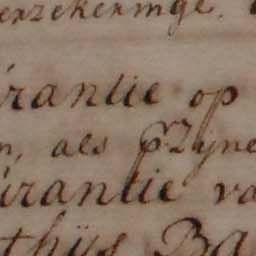 erzekeringe.
urantie op
n, als P. Zyne
urantie va
thijs Ba